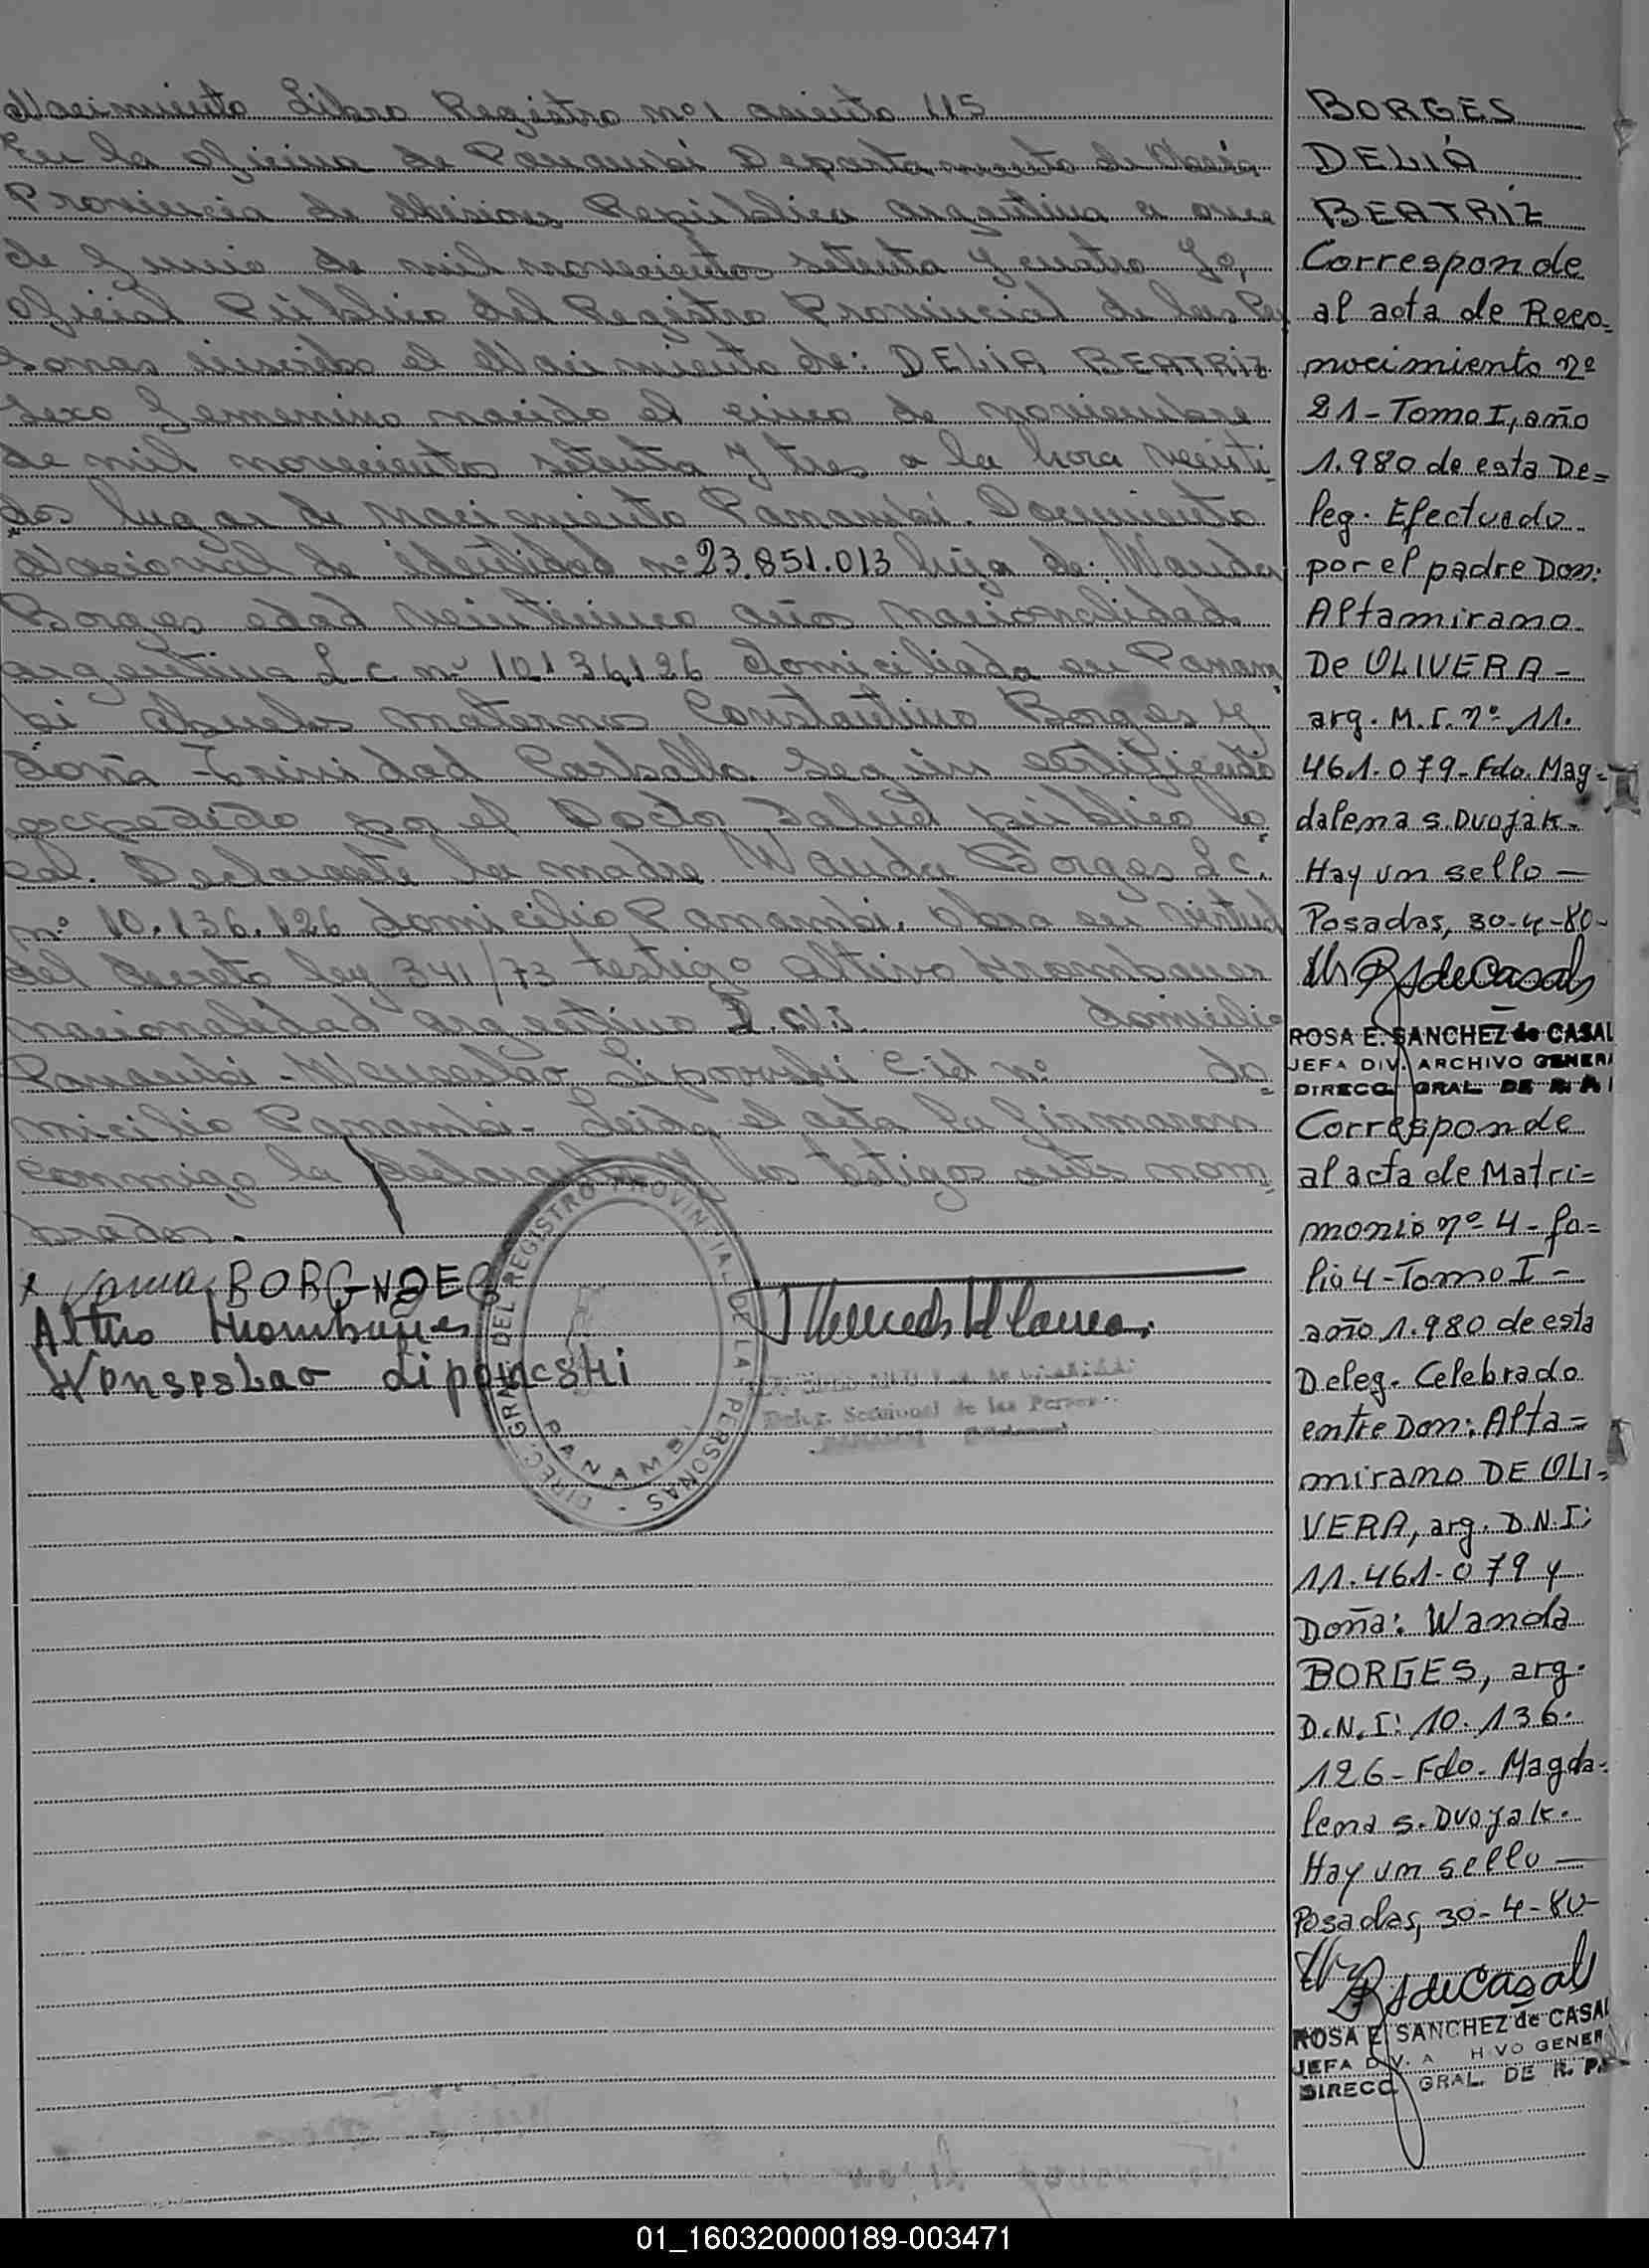 Nacimiento Libro Registro nº 1 asiento 115
En la oficina de Panambi Departamento de
Provincia de Misiones República argentina a once
de Junio de mil novecientos setenta y cuatro Yo,
Oficial Público del Registro Provincial de las Per
sonas inscribo el Nacimiento de: DELIA BEATRIZ
sexo femenino nacido el cinco de noviembre
de mil novecientos setenta y tres a la hora veinti
dos lugar de nacimiento Panambi. Documento
Nacional de identidad nº 23.851.013 hija de: Wanda
Borges edad veinticinco años nacionalidad
argentina L.C. nº 10136126 domiciliada en Panam
bi abuelos maternos Constantino Borges y
doña Trinidad según certificado
expedido por el Doctor Salud pública lo
cal. Declarante la madre Wanda Borges L.C.
nº 10.136.126 domicilio Panambi. Obra en virtud
del decreto ley 341/73 testigo
nacionalidad argentino domicilio
Panambi - C.id nº do=
micilio Panambi - Leida el acta la firmaron
conmigo la declarante y los testigos antes nom
brados.
DIREC. GRAL. DEL REGISTRO PROVINCIAL DE LAS PERSONAS -
PANAMBI
Deleg. Seccional de las Person
BORGES
DELIA
BEATRIZ
Corresponde
al acta de Reco=
nocimiento nº
21 - Tomo I, año
1.980 de esta De=
leg. Efectuado
por el padre Don:
Altamirano
De OLIVERA -
arg. M.I. nº 11.
461.079 - Fdo. Mag=
dalena S. Dvojak -
Hay un sello —
Posadas, 30-4-80-
ROSA E. SANCHEZ de CASAL
JEFA DIV. ARCHIVO GENERA
DIRECC. GRAL. DE
Corresponde
al acta de Matri=
monio nº 4 - fo=
lio 4 - Tomo I -
año 1.980 de esta
Deleg. Celebrado
entre Don: Alta=
mirano DE OLI=
VERA, arg. D.N.I:
11.461.079 y
Doña: Wanda
BORGES, arg.
D.N.I: 10.136.
126 - Fdo. Magda=
lena S. Dvojak.
Hay un sello —
Posadas, 30-4-80-
ROSA E. SANCHEZ de CASAL
JEFA DIV. A HIVO GENER
DIRECC. GRAL. DE R. P.
01_160320000189-003471